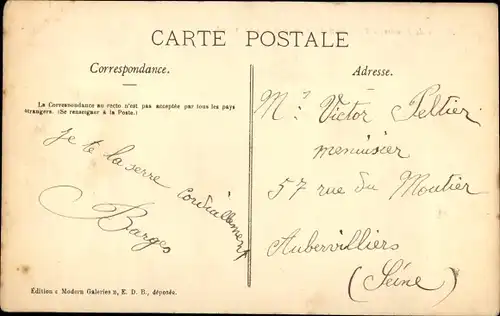 CARTE POSTALE
Correspondance.
Adresse.
La Correspondance au recto n'est pas acceptée par tous les pays
étrangers. (Se renseigner à la Poste.)
Je te la serre cordiallement
Barges
Mr Victor Peltier
menuisier
57 rue du Moutier
Aubervilliers
(Seine)
Édition : Modern Galeries 2, E. D. B., déposée.